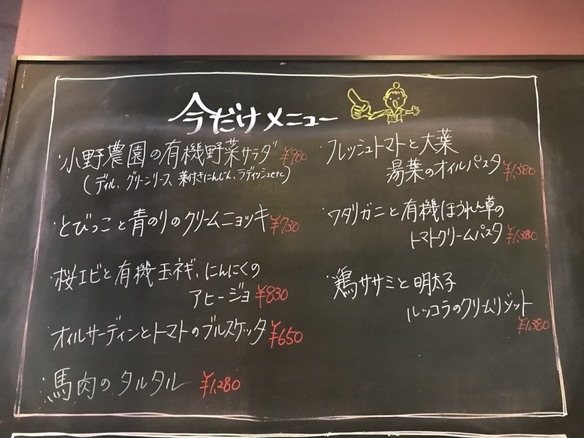 今だけメニュー
・小野農園の有機野菜サラダ ¥980
(ディル、グリーンリーフ、葉付きにんじん、ラディッシュetc)
・とびっこと青のりのクリームニョッキ ¥730
・桜エビと有機玉ネギ、にんにくの
アヒージョ ¥830
・オイルサーディンとトマトのブルスケッタ ¥650
・馬肉のタルタル ¥1,280
・フレッシュトマトと大葉
湯葉のオイルパスタ ¥1,380
・ワタリガニと有機ほうれん草の
トマトクリームパスタ ¥1,380
・鶏ササミと明太子
ルッコラのクリームリゾット
¥1,380